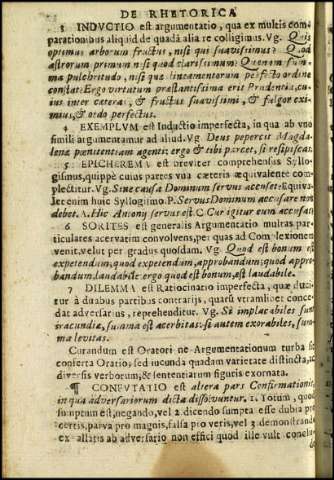 DE RHETORICA
3 INDVCTIO est argumentatio, qua ex multis com-
parationibus aliquid de quadã alia re colligimus. Vg. Quis
optimus arborum fructus, nisi qui suavissimus? Quod
astrorum primum nisi quod clarissimum? Quænam summa
pulchritudo, nisi quæ lineamentorum perfecto ordine
constat: Ergo virtutum præstantissima erit Prudentia, cu-
ius inter cætera, & fructus suavissimi, & fulgor exi-
mius, & ordo perfectus.
4 EXEMPLVM est Inductio imperfecta, in qua ab vno
simili argumentamur ad aliud. Vg. Deus pepercit Magda-
lenæ pœnitentiam agenti; ergo & tibi parcet, si resipiscas.
5 EPICHEREMA est breviter comprehensus Syllo-
gismus, quippè cuius partes vna cæteræ æquivalente com-
plectitur. Vg. Sine causa Dominum servus accuset: Equiva-
let enim huic Syllogismo. P. Servus Dominum accusare non
debet. A. Hic Antony servus est. C Cur igitur eum accusat?
6 SORITES est generalis Argumentatio multas par-
ticulares acervatim convolvens, per quas ad Complexionem
venit, velut per gradus quosdam. Vg. Quod est bonum est
expetendum; quod expetendum, approbandum; quod appro-
bandum, laudabile ergo quod est bonum, est laudabile.
7 DILEMMA est Ratiocinatio imperfecta, quæ duci-
tur à duabus partibus contrarijs, quarū vtramlibet conce-
dat adversarius, reprehenditur. Vg. Si implacabiles sunt
iracundiæ, summa est acerbitas: si autem exorabiles, sum-
ma levitas.
Curandum est Oratori ne Argumentationum turba sit
conferta Oratio, sed iucunda quadam varietate distincta,
diversis verborum, & sententiarum figuris exornata.
¶ CONFVTATIO est altera pars Confirmationis,
in qua adversariorum dicta dissolvuntur. 1. Totum, quod
sumptum est, negando, vel 2 dicendo sumpta esse dubia pro
certis, parva pro magnis, falsa pro veris, vel 3 demonstrando
ex allatis ab adversario non effici quod ille vult conclu-